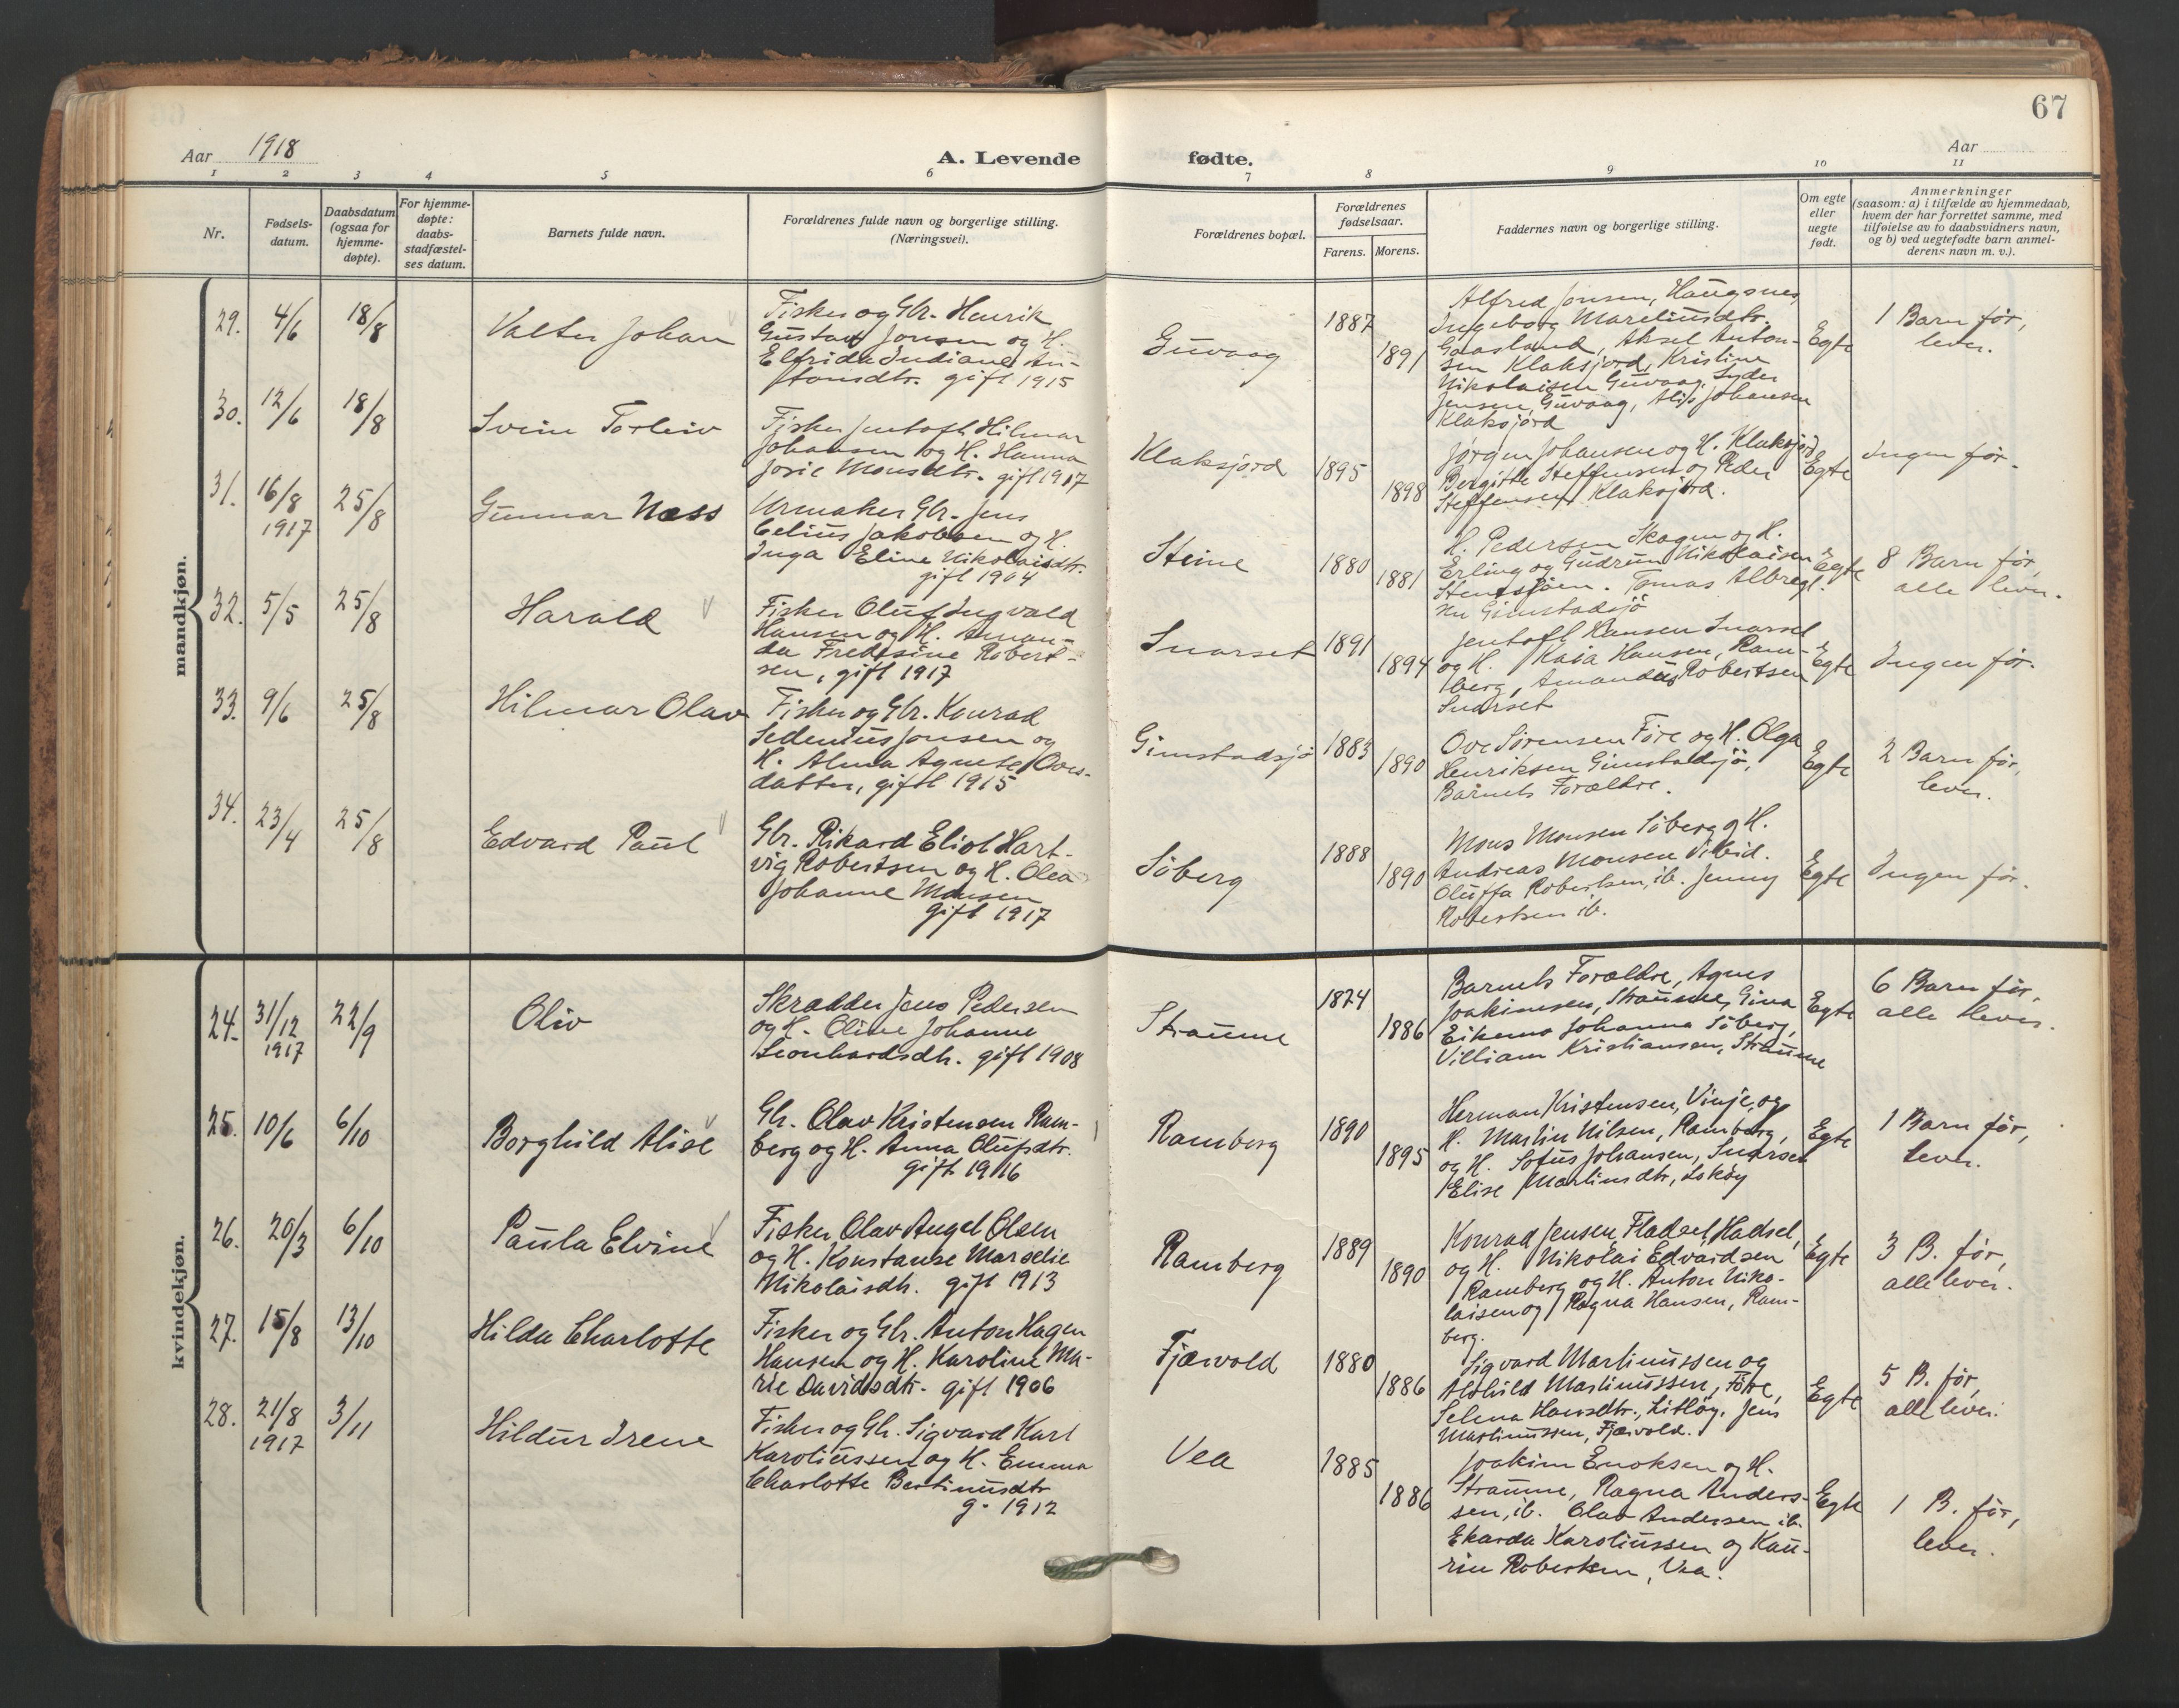 67
Aar 1918
A. Levende fødte.
Aar
1 2 3 4 5 6 7 8 9 10 11
Nr.
Fødsels-
datum.
Daabsdatum
(ogsaa for
hjemme-
døpte).
For hjemme-
døpte:
daabs-
stadfæstel-
ses datum.
Barnets fulde navn.
Forældrenes fulde navn og borgerlige stilling.
(Næringsvei).
Forældrenes bopæl.
Forældrenes
fødselsaar.
Farens. Morens.
Faddernes navn og borgerlige stilling.
Om egte
eller
uegte
født.
Anmerkninger
(saasom: a) i tilfælde av hjemmedaab,
hvem der har forrettet samme, med
tilføielse av to daabsvidners navn,
og b) ved uegtefødte barn anmel-
derens navn m. v.).
mandkjøn.
29. 4/6 18/8
Valter Johan
Fisker og Gbr. Henrik
Gustav Jonsen og H.
Elfrida Indiane An-
tonsdtr. gift 1915
Guvaag
1887
1891
Alfred Jonsen, Haugsnes
Ingeborg Mareliusdtr.
Gaasland, Aksel Anton-
sen Klaksjord, Kristine
Nikolaisen Guvaag,
Jensen, Guvaag, Johansen
Klaksjord
Egte
1 Barn før,
lever.
30. 12/6 18/8
Svein Torleiv
Fisker Jentoft Hilmar
Johansen og H. Hanna
Josie Monsdtr. gift 1917
Klaksjord
1895
1898
Jørgen Johansen og H. Klaksjord
Bergitte Steffensen og Peder
Steffensen, Klaksjord.
Egte
Ingen før.
31. 16/8 1917 25/8
Gunnar Næss
Urmaker Gbr. Jens
Celius Jakobsen og H.
Inga Eline Nikolaisdtr.
gift 1904
Steine
1880
1881
H. Pedersen Skagen og H.
Erling og Gudrun Nikolaisen
Steinsjøen. Tomas Albregt-
sen Gimstadsjø
Egte
8 Barn før,
alle lever.
32. 5/5 25/8
Harald
Fisker Oluf Ingvald
Hansen og H. Aman-
da Fredesine Robert-
sen, gift 1917
Snarset
1891
1894
Jentoft Hansen Snarset
og H. Kaia Hansen, Ram-
berg, Amandus Robertsen
Snarset
Egte
Ingen før.
33. 9/6 25/8
Hilmar Olav
Fisker og Gbr. Konrad
Sedenius Jonsen og
H. Alma Agnete Oves-
datter, gift 1915
Gimstadsjø
1883
1890
Ove Sørensen Føre og H. Olga
Henriksen Gimstadsjø,
Barnets Forældre.
Egte
2 Barn før,
lever.
34. 23/4 25/8
Edvard Paul
Gbr. Rikard Eliot Hart-
vig Robertsen og H. Olea
Johanne Monsen
gift 1917
Søberg
1888
1890
Mons Monsen Søberg og H.
Andreas Monsen ibid.
Oluffa Robertsen, ib. Jenny
Robertsen ib.
Egte
Ingen før.
kvindekjøn.
24. 31/12 1917 22/9
Oliv
Skrædder Jens Pedersen
og H. Oline Johanne
Leonhardsdtr. gift 1908
Straume
1874
1886
Barnets Forældre, Agnes
Joakimsen, Straume, Gina
Johanna Søberg,
Villiam Kristiansen, Straume
Egte
6 Barn før,
alle lever.
25. 10/6 6/10
Borghild Alise
Gbr. Olav Kristensen Ram-
berg og H. Anna Olufsdtr.
gift 1916
Ramberg
1890
1895
Herman Kristensen, Vinje, og
H. Martin Nilsen, Ramberg,
og H. Sofus Johansen, Snarset
Elise Martinsdtr, Løkøy
Egte
1 Barn før,
lever.
26. 20/3 6/10
Paula Elvine
Fisker Olav Angel Olsen
og H. Konstanse Marselie
Nikolaisdtr. gift 1913
Ramberg
1889
1890
Konrad Jensen, Fladset, Hadsel,
og H. Nikolai Edvardsen
Ramberg og H. Anton Niko-
laisen og Ragna Hansen, Ram-
berg.
Egte
3 B. før,
alle lever.
27. 15/8 13/10
Hilda Charlotte
Fisker og Gbr. Anton Hagen
Hansen og H. Karoline Ma-
rie Davidsdtr. gift 1906
Fjærvold
1880
1886
Sigvard Martinussen og
Alfhild Martinussen, Føre,
Selma Hansdtr., Litløy, Jens
Martinussen, Fjærvold.
Egte
5 B. før,
alle lever.
28. 21/8 1917 3/11
Hildur Irene
Fisker og Gbr. Sigvard Karl
Karoliussen og H. Emma
Charlotte Bertinusdtr
g. 1912
Vea
1885
1886
Joakim Enoksen og H.
Straume, Ragna Anders-
sen, ib. Olav Andersen ib.
Ekarda Karoliussen og Kau-
rin Robertsen, Vea.
Egte
1 B. før,
lever.